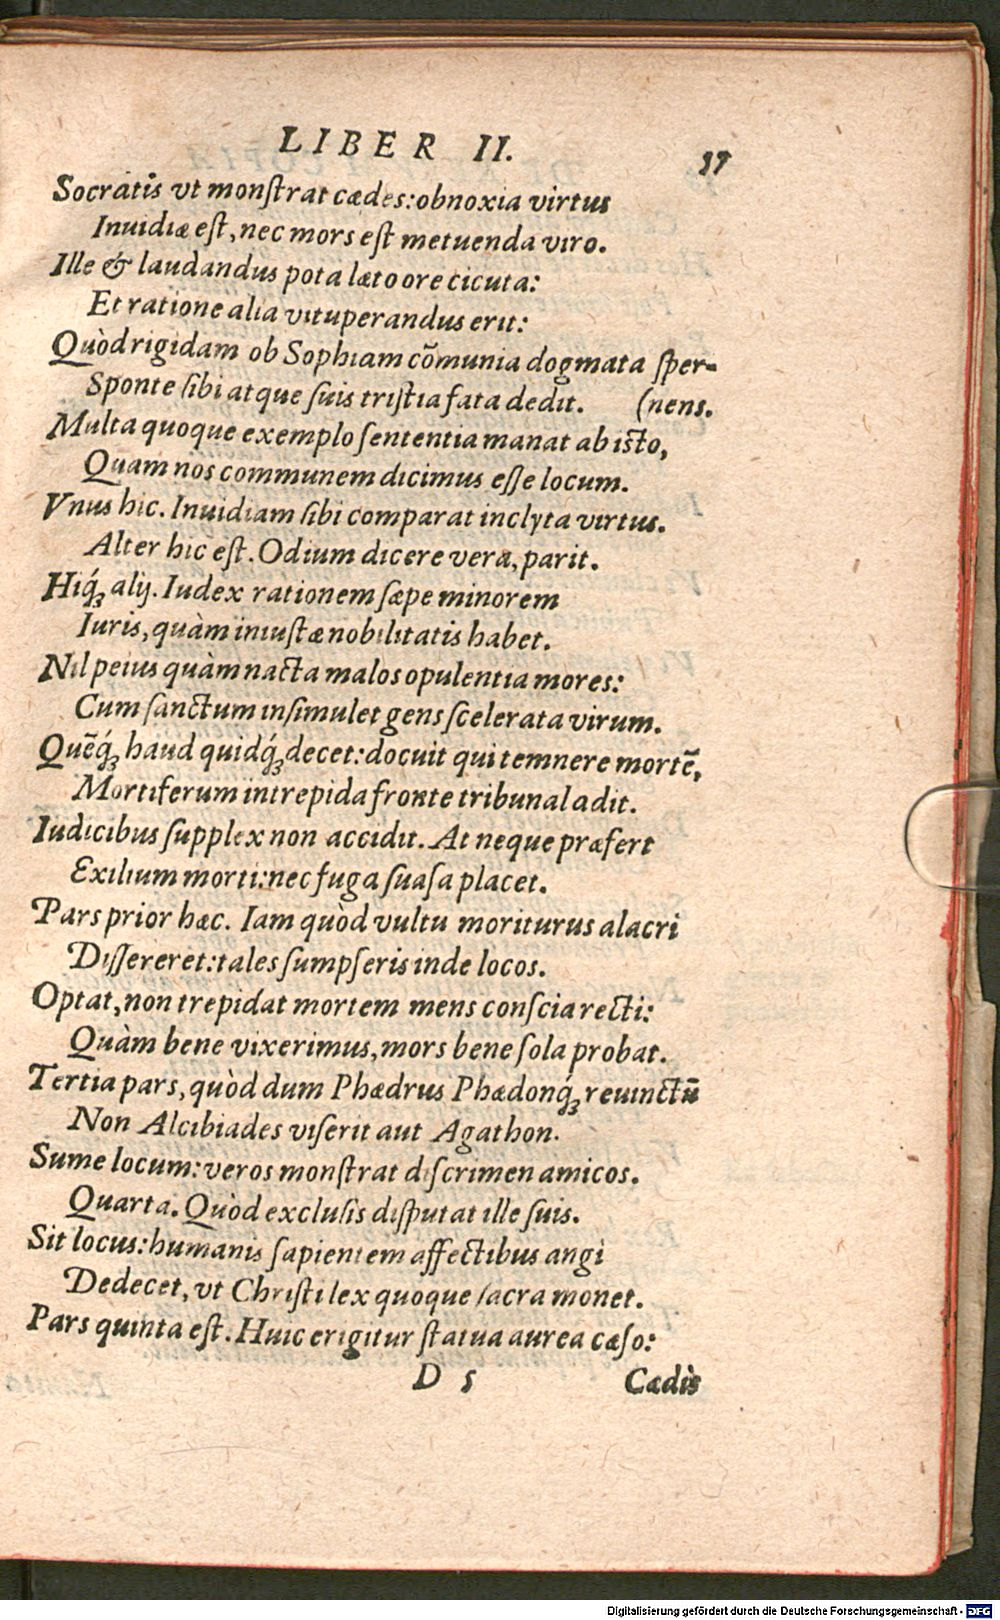 LIBER II. 57
Socratis vt monſtrat cædes: obnoxia virtus
Inuidiæ eſt, nec mors eſt metuenda viro.
Ille & laudandus pota læto ore cicuta:
Et ratione alia vituperandus erit:
Quòd rigidam ob Sophiam cõmunia dogmata ſper-
Sponte ſibi atque ſuis triſtia fata dedit. (nens.
Multa quoque exemplo ſententia manat ab iſto,
Quam nos communem dicimus eſſe locum.
Vnus hic. Inuidiam ſibi comparat inclyta virtus.
Alter hic eſt. Odium dicere vera, parit.
Hiq́ꝫ alij. Iudex rationem ſæpe minorem
Iuris, quàm iniuſtæ nobilitatis habet.
Nil peius quàm nacta malos opulentia mores:
Cum ſanctum inſimulet gens ſcelerata virum.
Quẽq́ꝫ haud quidq́ꝫ decet: docuit qui temnere mortẽ,
Mortiferum intrepida fronte tribunal adit.
Iudicibus ſupplex non accidit. At neque præfert
Exilium morti: nec fuga ſuaſa placet.
Pars prior hæc. Iam quòd vultu moriturus alacri
Diſſereret: tales ſumpſeris inde locos.
Optat, non trepidat mortem mens conſcia recti:
Quàm bene vixerimus, mors bene ſola probat.
Tertia pars, quòd dum Phædrus Phædonq́ꝫ reuinctũ
Non Alcibiades viſerit aut Agathon.
Sume locum: veros monſtrat diſcrimen amicos.
Quarta. Quòd excluſis diſputat ille ſuis.
Sit locus: humanis ſapientem affectibus angi
Dedecet, vt Chriſti lex quoque ſacra monet.
Pars quinta eſt. Huic erigitur ſtatua aurea cæſo:
D 5 Cædis
Digitalisierung gefördert durch die Deutsche Forschungsgemeinschaft - DFG